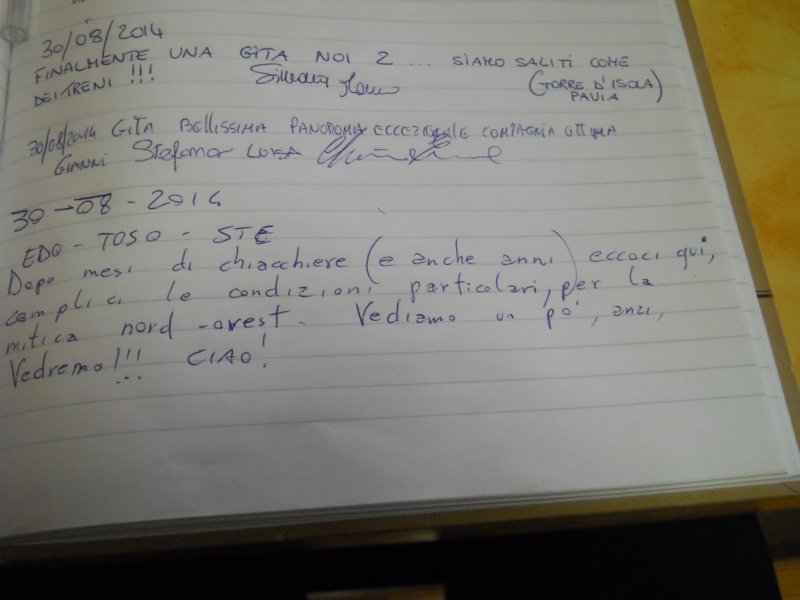 30/08/2014
FINALMENTE UNA GITA NOI 2 ... SIAMO SALITI COME
DEI TRENI !!! (TORRE D'ISOLA
PAVIA)
30/08/2014 GITA BELLISSIMA PANORAMA ECCEZIONALE COMPAGNIA OTTIMA
GIANNI Stefano LUISA
30-08-2014
EDO - TOSO - STE
Dopo mesi di chiacchiere (e anche anni) eccoci qui,
complici le condizioni particolari, per la
mitica nord-ovest. Vediamo un pò, anzi,
Vedremo!!! CIAO!